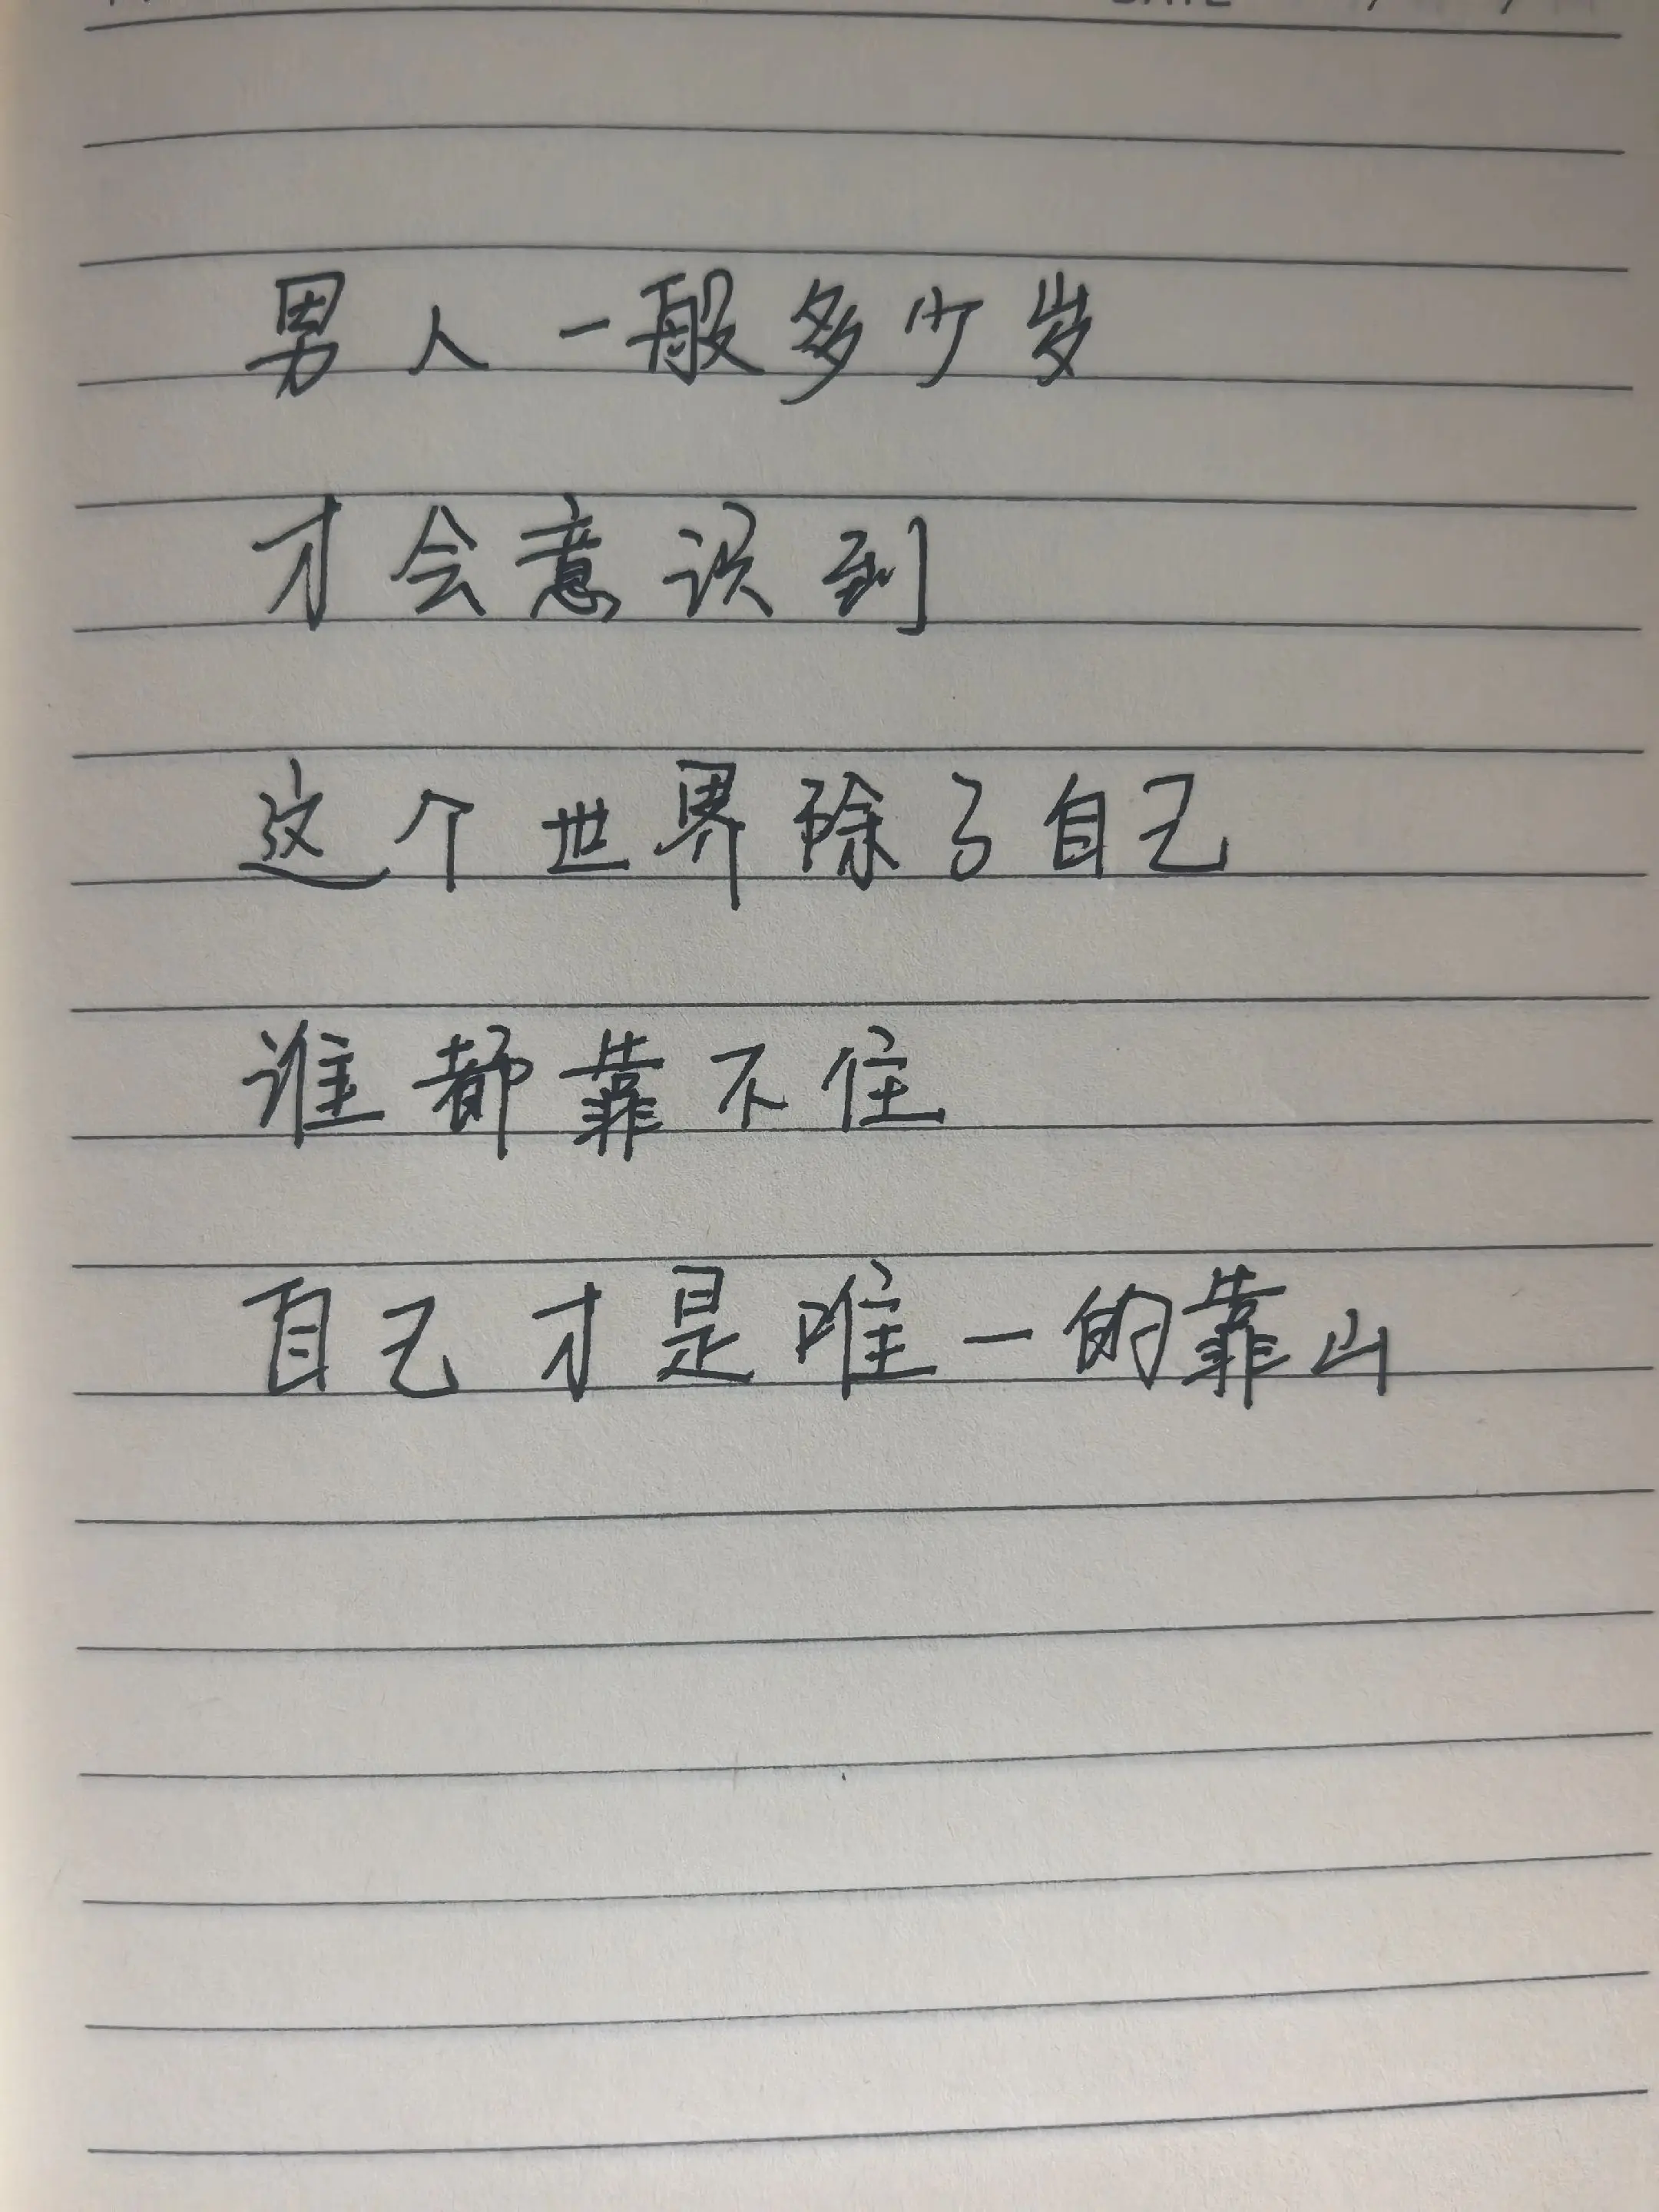 DATE
男人一般多少岁
才会意识到
这个世界除了自己
谁都靠不住
自己才是唯一的靠山